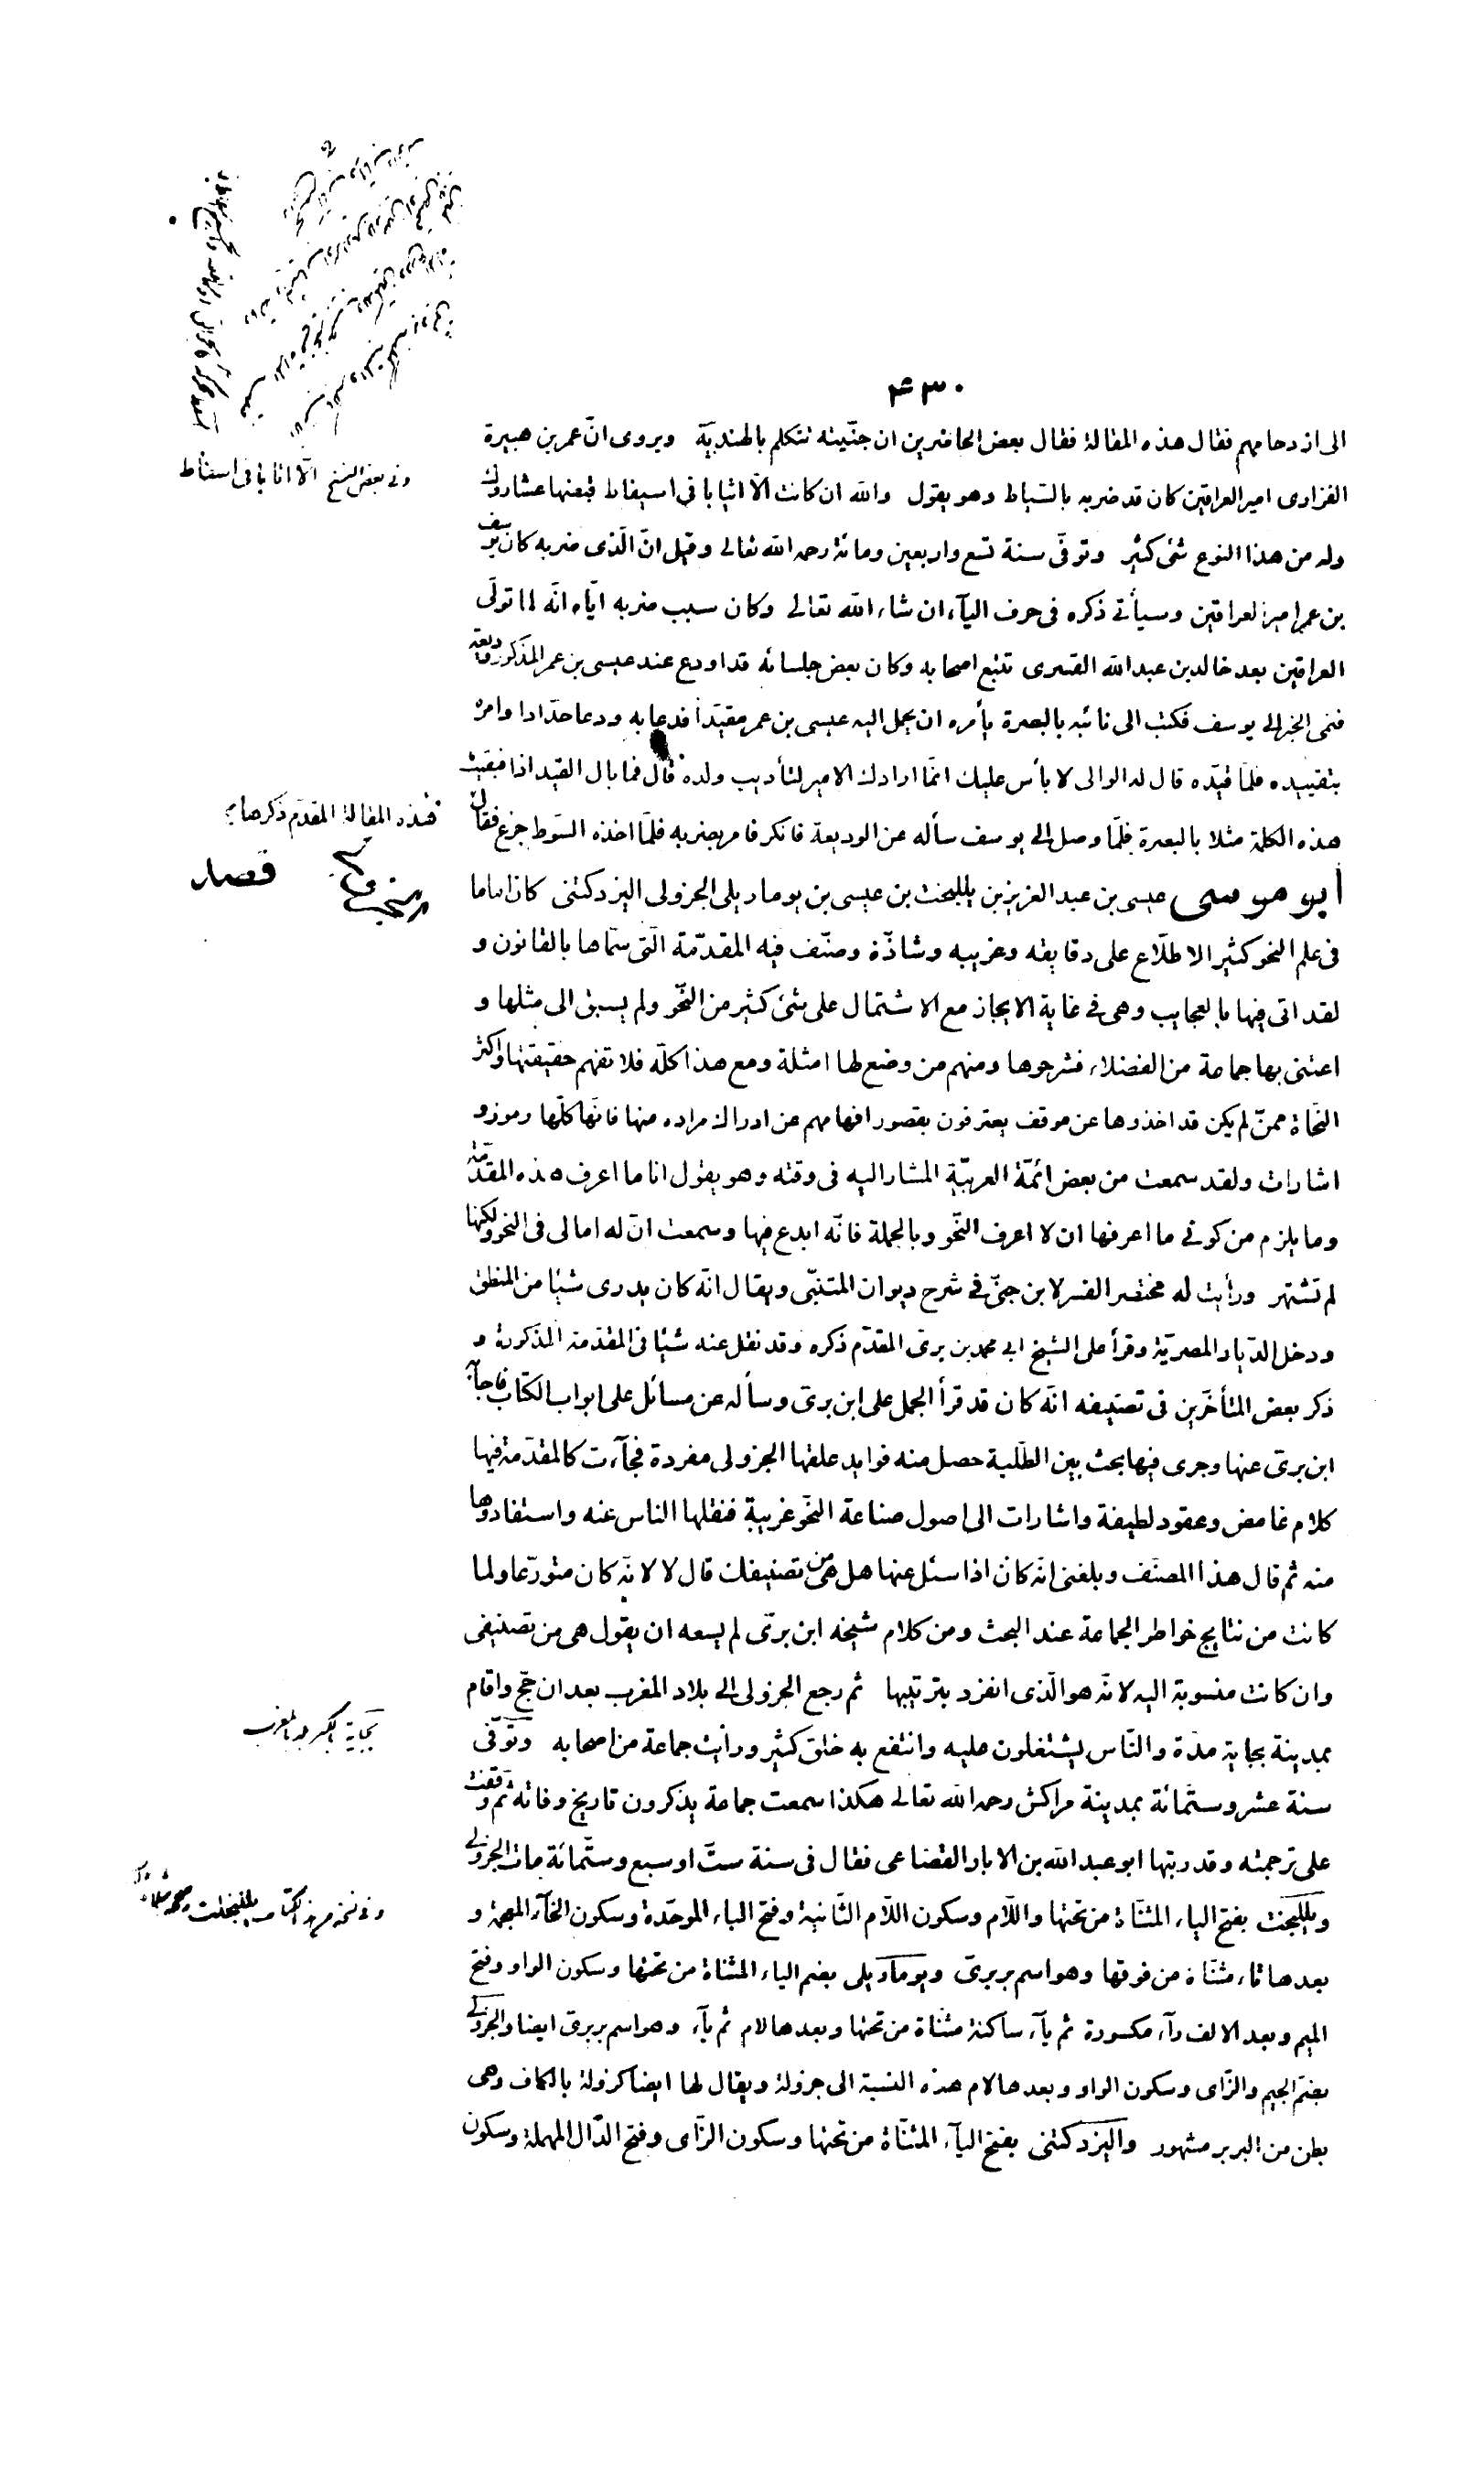 ۴۳۰
الى ازدحامهم فقال هذه المقالة فقال بعض الحاضرين ان جنّيته تتكلم بالهنديّة ويروى انّ عمر بن هبيرة
الفزارى امير العراقين كان قد ضربه بالسّياط وهو يقول والله ان كانت الّا اثيابا فى اسيفاط قبضها عشاروك
وله من هذا النوع شئ كثير وتوفّى سنة تسع واربعين ومائة رحمه الله تعالى وقيل انّ الّذى ضربه كان يوسف
بن عمر امير العراقين وسيأتى ذكره فى حرف اليآء ان شاء الله تعالى وكان سبب ضربه ايّاه انّه لما تولّى
العراقين بعد خالد بن عبد الله القسرى تتبع اصحابه وكان بعض جلسائه قد اودع عند عيسى بن عمر المذكور وديعة
فنمى الخبر الى يوسف فكتب الى نائبه بالبصرة يأمره ان يحمل اليه عيسى بن عمر مقيّدا فدعا به ودعا حدّادا وامره
بتقييده فلمّا قيّده قال له الوالى لا بأس عليك انمّا ارادك الامير لتأديب ولده قال فما بال القيد اذا فبقيت
هذه الكلمة مثلا بالبصرة فلمّا وصل الى يوسف سأله عن الوديعة فانكر فامر بضربه فلمّا اخذه السّوط جزع فقال
هذه المقالة المقدّم ذكرها
أبو موسى عيسى بن عبد العزيز بن يللبخت بن عيسى بن يوماريلى الجزولى اليزدكتنى كان اماما
فى علم النحو كثير الاطلّاع على دقايقه وغريبه وشاذّه وصنّف فيه المقدّمة الّتى سمّاها بالقانون و
لقد اتى فيها بالعجايب وهى فى غاية الايجاز مع الاشتمال على شئ كثير من النّحو ولم يسبق الى مثلها و
اعتنى بها جماعة من الفضلاء فشرحوها ومنهم من وضع لها امثلة ومع هذا كلّه فلا تفهم حقيقتها واكثر
النّحاة ممنّ لم يكن قد اخذوها عن موقف يعترفون بقصور افهامهم عن ادراك مراده منها فانّها كلّها رموز و
اشارات ولقد سمعت من بعض ائمّة العربيّة المشار اليه فى وقته وهو يقول انا ما اعرف هذه المقدّمة
وما يلزم من كونى ما اعرفها ان لا اعرف النّحو وبالجملة فانّه ابدع فيها وسمعت انّ له امالى فى النحو ولكنها
لم تشتهر ورأيت له مختصر الفسر لابن جنّى فى شرح ديوان المتنبّى ويقال انّه كان يدرى شيئا من المنطق
ودخل الدّيار المصريّة وقرأ على الشيخ ابى محمد بن برى المقدّم ذكره وقد نقل عنه شيئا فى المقدّمة المذكورة و
ذكر بعض المتأخّرين فى تصنيفه انّه كان قد قرأ الجمل على ابن برّى وسأله عن مسائل على ابواب الكتاب فاجآبه
ابن برىّ عنها وجرى فيها بحث بين الطّلبة حصل منه فوايد علقها الجزولى مفردة فجآءت كالمقدّمة فيها
كلام غامض وعقود لطيفة واشارات الى اصول صناعة النّحو غريبة فنقلها الناس عنه واستفادوها
منه ثم قال هذا المصنّف وبلغنى انّه كان اذا سئل عنها هل هى من تصنيفك قال لا لانّه كان متورّعا ولما
كانت من نتايج خواطر الجماعة عند البحث ومن كلام شيخه ابن برّى لم يسعه ان يقول هى من تصنيفى
وان كانت منسوبة اليه لانّه هو الّذى انفرد بترتيبها ثم رجع الجزولى الى بلاد المغرب بعد ان حجّ واقام
بمدينة بجاية مدّة والنّاس يشتغلون عليه وانتفع به خلق كثير ورأيت جماعة من اصحابه وتوفّى
سنة عشر وستّمائة بمدينة مراكش رحمه الله تعالى هكذا سمعت جماعة يذكرون تاريخ وفاته ثم وقفت
على ترجمته وقد رتبها ابو عبد الله بن الابار القضاعى فقال فى سنة ستّ او سبع وستّمائة مات الجزولى
ويللبخت بفتح الياء المثنّاة من تحتها واللّام وسكون اللّام الثّانية وفتح الباء الموحّدة وسكون الخآء المعجمة و
بعدها تاء مثنّاة من فوقها وهو اسم بربرىّ ويوماريلى بضم الياء المثناة من تحتها وسكون الواو وفتح
الميم وبعد الالف رآء مكسورة ثم يآء ساكنة مثنّاة من تحتها وبعدها لام ثم يآء وهو اسم بربرىّ ايضا والجزولى
بضمّ الجيم والزّاى وسكون الواو وبعدها لام هذه النسبة الى جزولة ويقال لها ايضا كزولة بالكاف وهى
بطن من البربر مشهور واليزدكتنى بفتح اليآء المثنّاة من تحتها وسكون الزّاى وفتح الدّال المهملة وسكون
وفى بعض النسخ الّا اثيابا فى اسفاط
بجاية بالكسر بلد بالمغرب